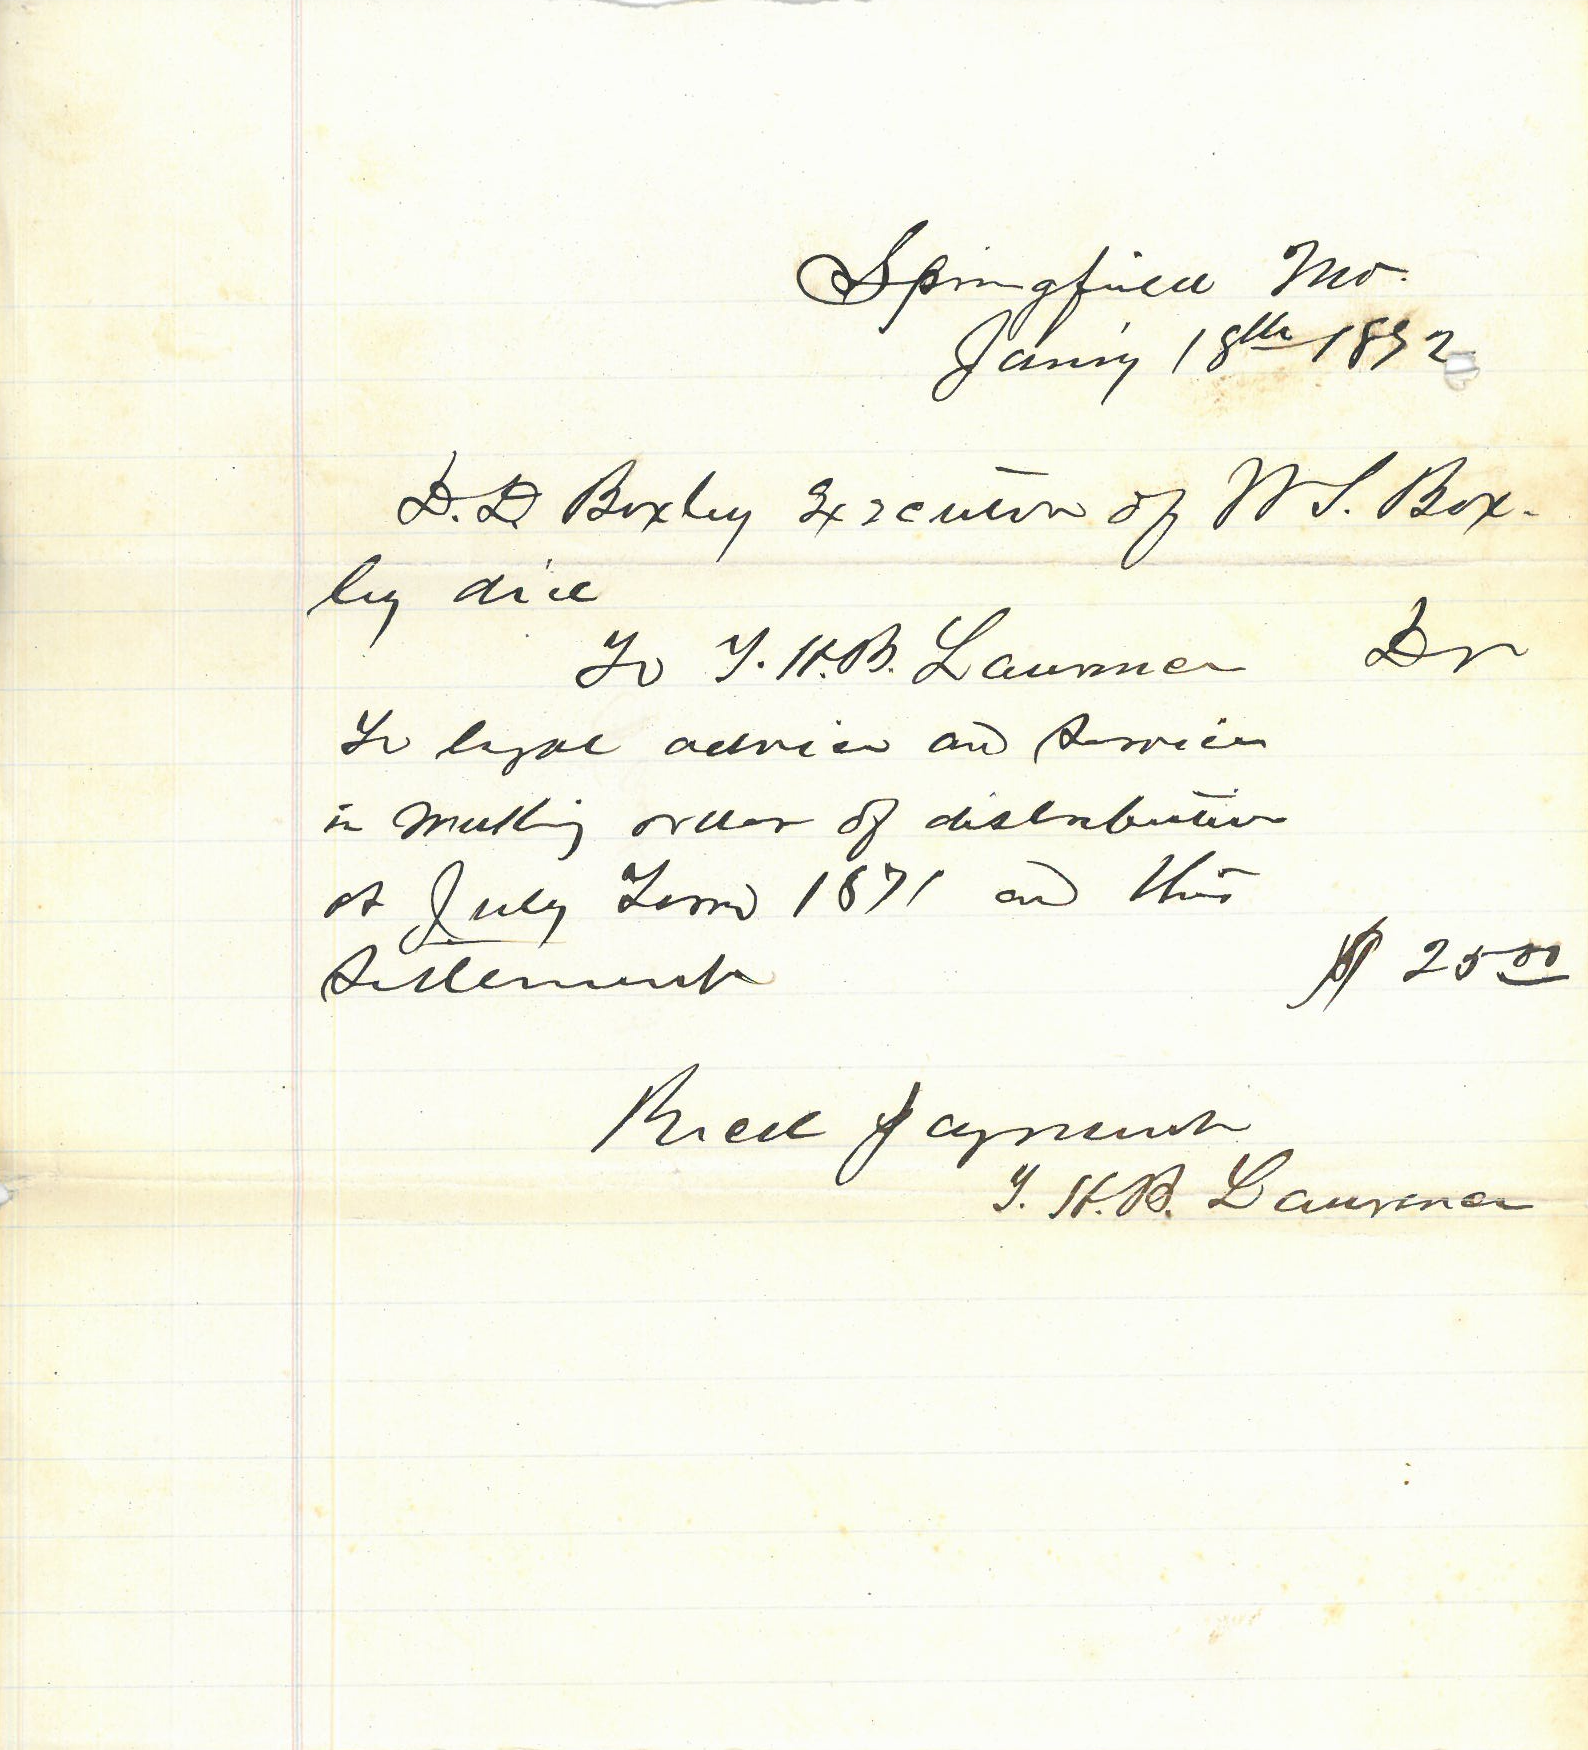 Springfield Mo.
Jan'y 18th 1892
D. D. Boxley Executor of W S. Box-
ley dec'd
To T. H. B. Lawrence Dr
To legal advice and services
in making order of distribution
at July Term 1871 and this
Settlement $ 25 00
Rec'd payment
T. H. B. Lawrence